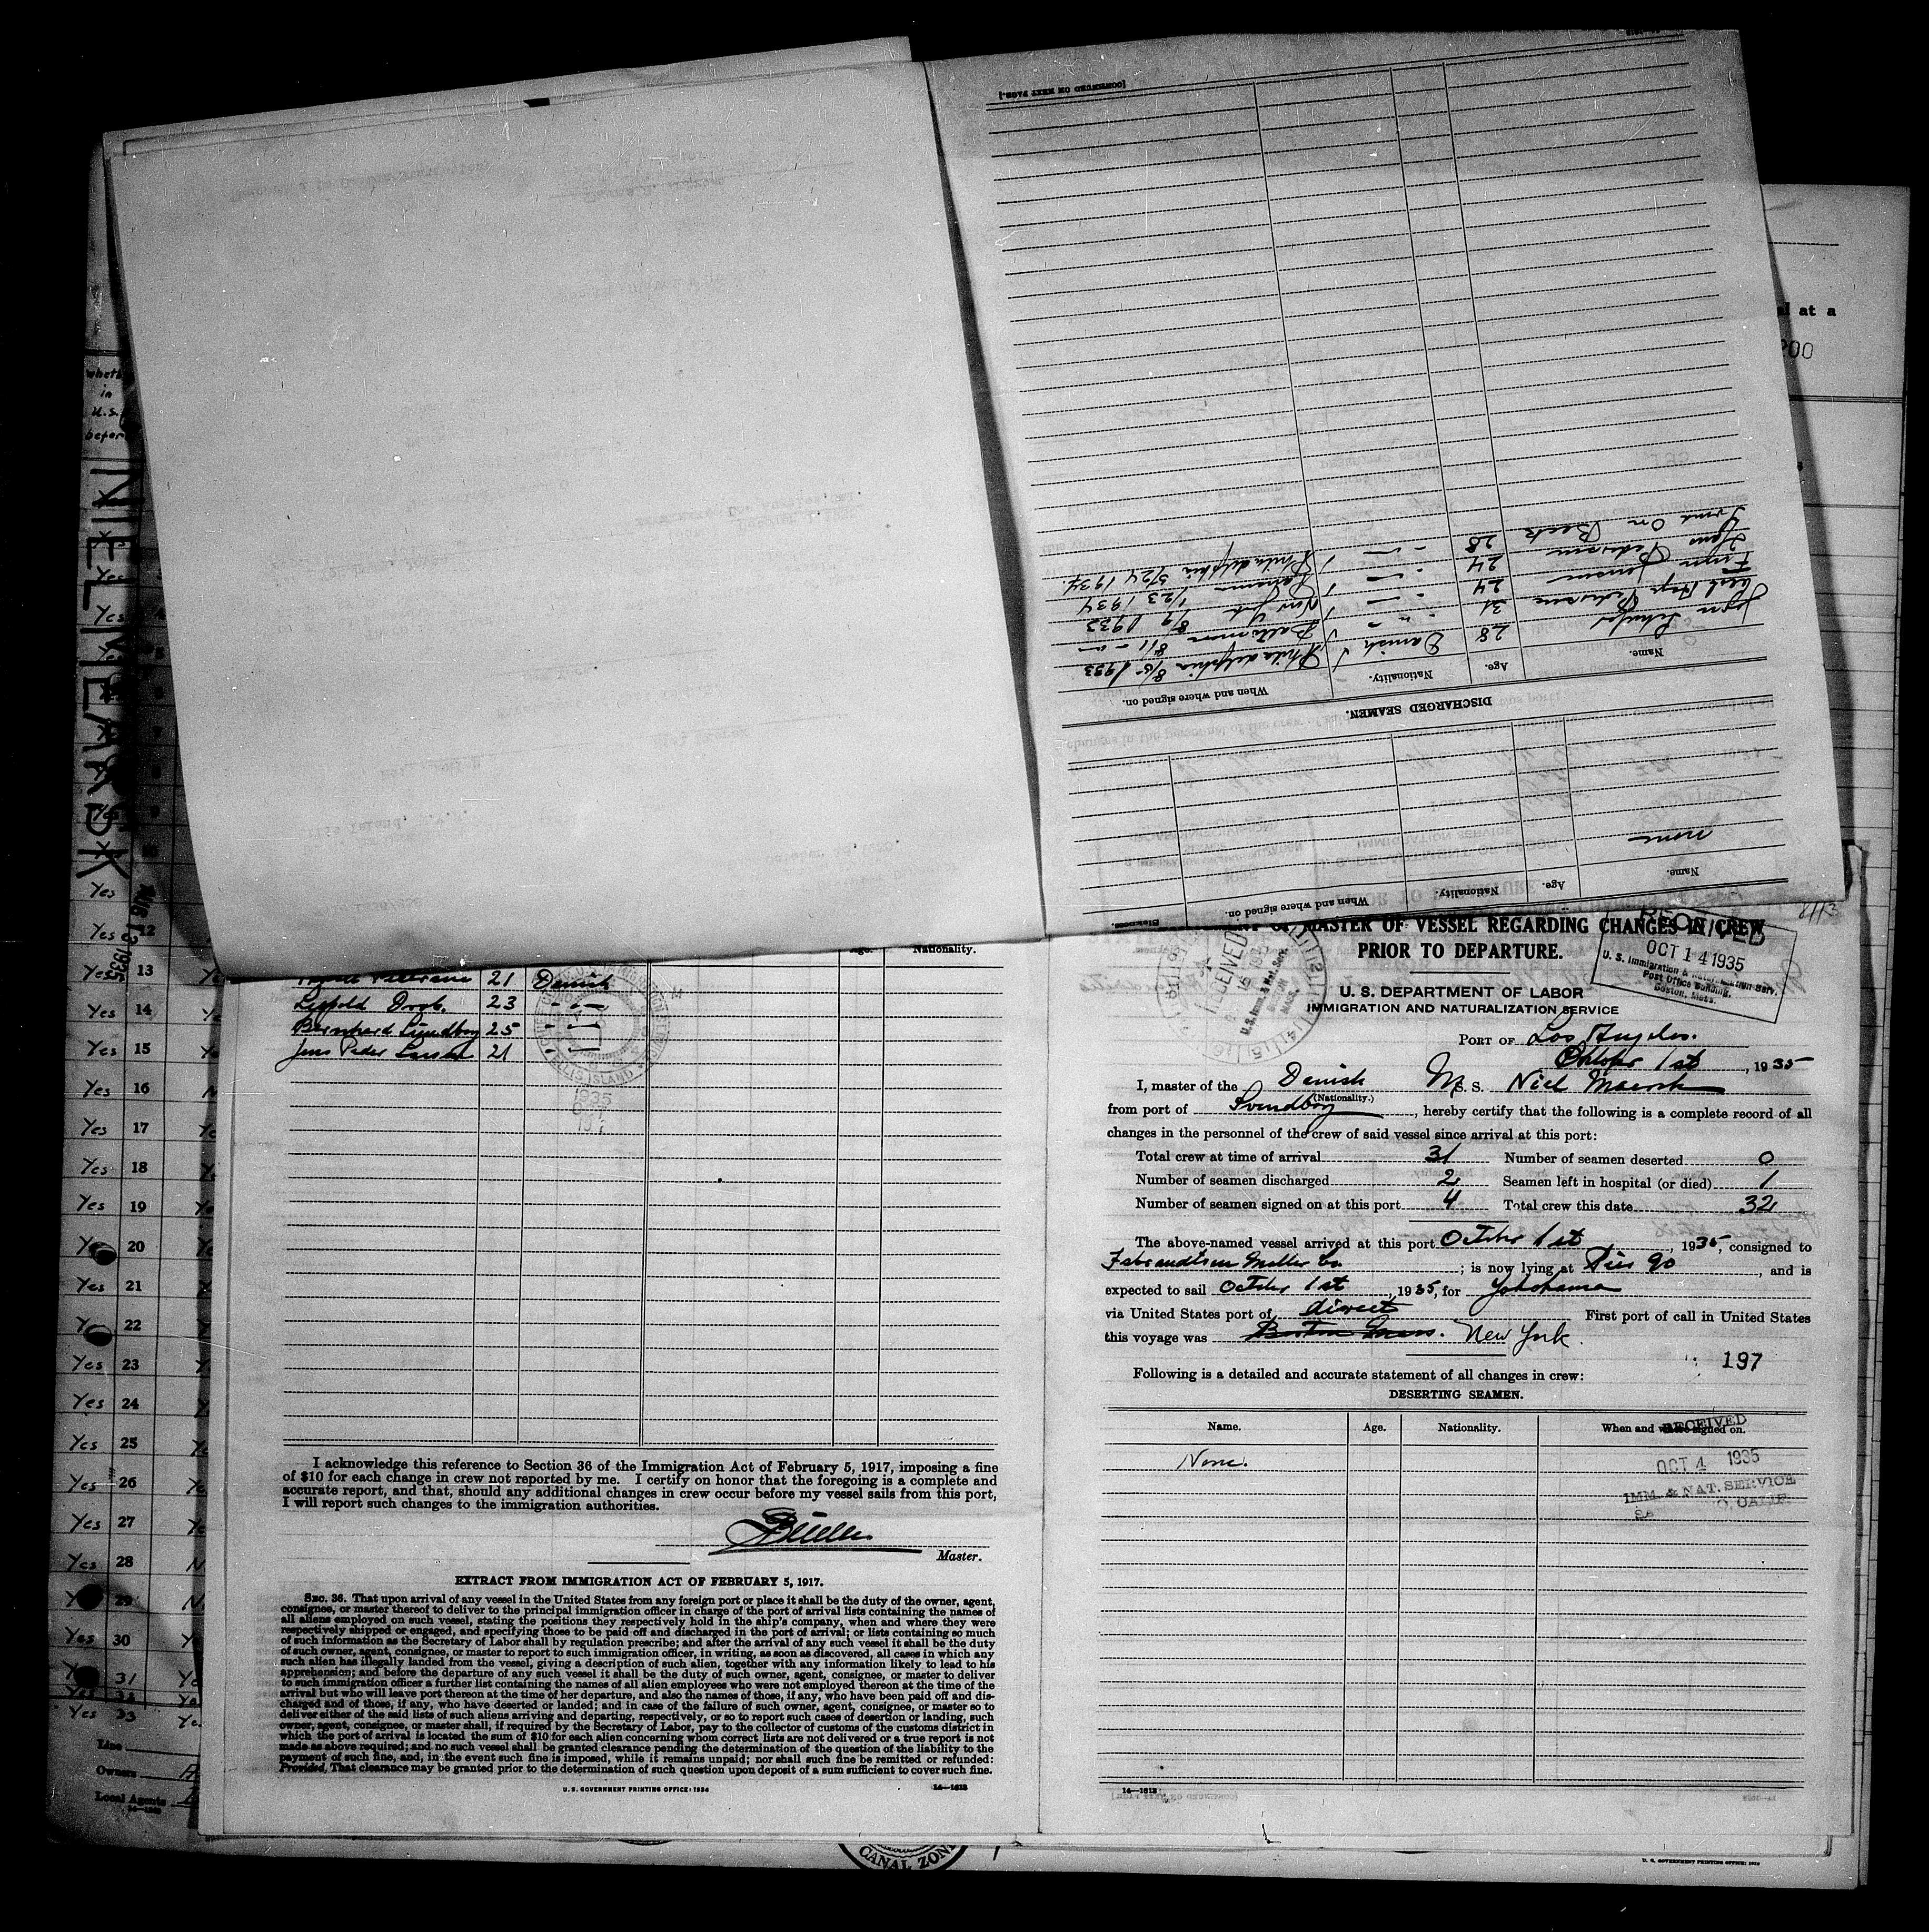 [CONTINUED ON NEXT PAGE.]
Hans On Beck 28
Pedersen 24 Philadelphia 5/24 1934.
Jensen 24 1/23 1934
Pedersen 31 New York 8/9 1933
28 Danish Philadelphia 8/5 1933
Name. Age. Nationality. When and where signed on.
DISCHARGED SEAMEN.
none
Name. Age. Nationality. When and where signed on.
al at a
whet
in
U.S.
before
NIEL MEARSK
AUG 13 1935
Yes
Yes 12
Yes 13
Yes 14
Yes 15
Yes 16
Yes 17
Yes 18
Yes 19
20
Yes 21
22
Yes 23
Yes 24
Yes 25
Yes 26
Yes 27
Yes 28
29
Yes 30
31
Yes 33
Line
Owners
Local Agents
Age. Nationality.
21 Danish
23 -"-
Bernhard Lundberg 25
Jens Peder Larsen 21
ELLIS ISLAND
1935
OCT
I acknowledge this reference to Section 36 of the Immigration Act of February 5, 1917, imposing a fine
of $10 for each change in crew not reported by me. I certify on honor that the foregoing is a complete and
accurate report, and that, should any additional changes in crew occur before my vessel sails from this port,
I will report such changes to the immigration authorities.
Master.
EXTRACT FROM IMMIGRATION ACT OF FEBRUARY 5, 1917.
SEC. 36. That upon arrival of any vessel in the United States from any foreign port or place it shall be the duty of the owner, agent,
consignee, or master thereof to deliver to the principal immigration officer in charge of the port of arrival lists containing the names of
all aliens employed on such vessel, stating the positions they respectively hold in the ship's company, when and where they were
respectively shipped or engaged, and specifying those to be paid off and discharged in the port of arrival; or lists containing so much
of such information as the Secretary of Labor shall by regulation prescribe; and after the arrival of any such vessel it shall be the duty
of such owner, agent, consignee, or master to report to such immigration officer, in writing, as soon as discovered, all cases in which any
such alien has illegally landed from the vessel, giving a description of such alien, together with any information likely to lead to his
apprehension; and before the departure of any such vessel it shall be the duty of such owner, agent, consignee, or master to deliver
to such immigration officer a further list containing the names of all alien employees who were not employed thereon at the time of the
arrival but who will leave port thereon at the time of her departure, and also the names of those, if any, who have been paid off and dis-
charged and of those, if any, who have deserted or landed; and in case of the failure of such owner, agent, consignee, or master so to
deliver either of the said lists of such aliens arriving and departing, respectively, or so to report such cases of desertion or landing, such
owner, agent, consignee, or master shall, if required by the Secretary of Labor, pay to the collector of customs of the customs district in
which the port of arrival is located the sum of $10 for each alien concerning whom correct lists are not delivered or a true report is not
made as above required; and no such vessel shall be granted clearance pending the determination of the question of the liability to the
payment of such fine, and, in the event such fine is imposed, while it remains unpaid; nor shall such fine be remitted or refunded:
Provided, That clearance may be granted prior to the determination of such question upon deposit of a sum sufficient to cover such fine.
U. S. GOVERNMENT PRINTING OFFICE: 1934 14—1613
OF MASTER OF VESSEL REGARDING CHANGES IN CREW
PRIOR TO DEPARTURE.
RECEIVED
OCT 14 1935
U. S. Immigration & Naturalization Serv.
Post Office Building,
Boston, Mass.
RECEIVED
U. S. Imm. & Nat. Serv.
BOSTON
MASS.
U. S. DEPARTMENT OF LABOR
IMMIGRATION AND NATURALIZATION SERVICE
PORT OF Los Angeles.
Oktober 1st, 1935
I, master of the Danish M/S. S. Niel Maersk
(Nationality.)
from port of Svendborg, hereby certify that the following is a complete record of all
changes in the personnel of the crew of said vessel since arrival at this port:
Total crew at time of arrival 31 Number of seamen deserted 0
Number of seamen discharged 2 Seamen left in hospital (or died) 1
Number of seamen signed on at this port 4 Total crew this date 32
The above-named vessel arrived at this port October 1st, 1935, consigned to
Isbrandtsen Moller Co; is now lying at Pier 90, and is
expected to sail October 1st, 1935, for Yokohama
via United States port of direct First port of call in United States
this voyage was Boston Mass. New York.
197
Following is a detailed and accurate statement of all changes in crew:
DESERTING SEAMEN.
Name. Age. Nationality. When and where signed on.
None.
RECEIVED
OCT 4 1935
IMM. & NAT. SERVICE
CALIF.
14—1613
CANAL ZONE